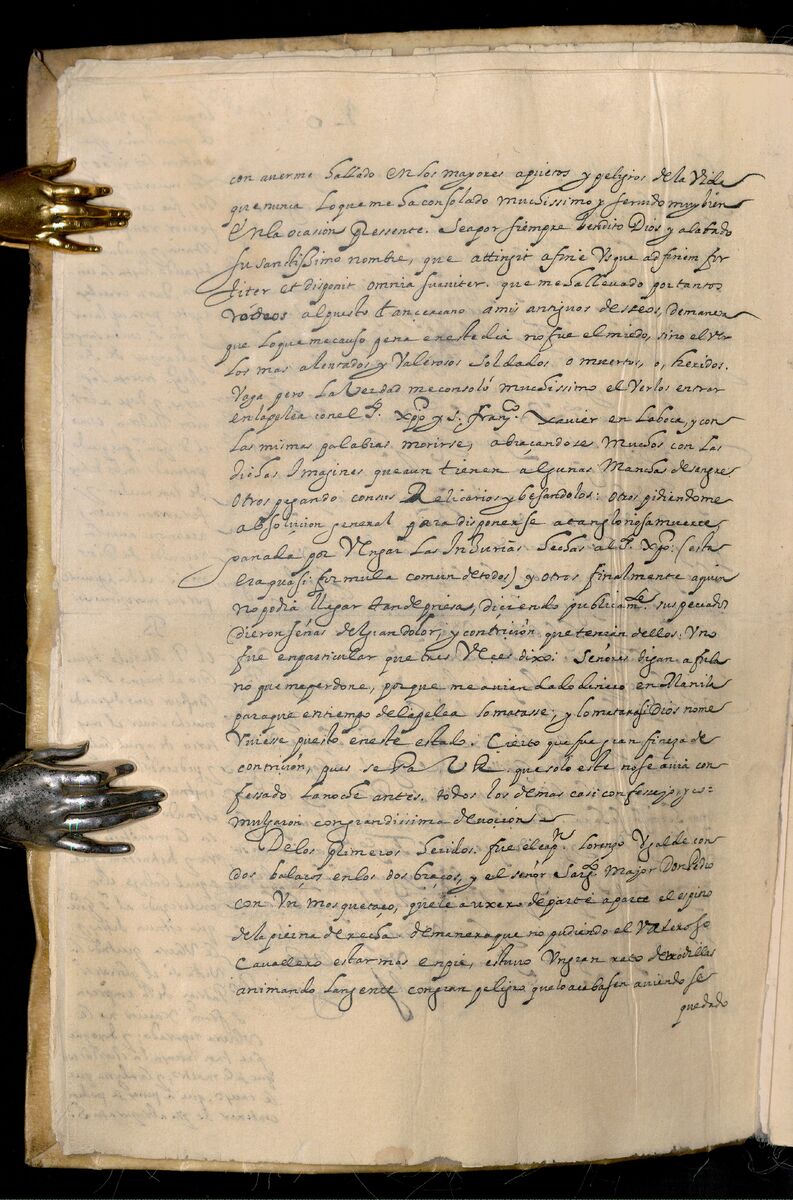 con auerme hallado en los mayores aprietos y peligros de la Vida
que nunca lo que me ha consolado muchissimo y seruido muy bien
en la ocasion pressente. Sea por siempre bendito Dios y alabado
su sanctissimo nombre, que attingit a fine Vsque ad finem for
titer et disponit omnia suauiter. que me ha lleuado por tantos
rodeos al puesto tan cercano a mis antiguos deseos, de manera
que lo que me causo pena en este dia no fue el miedo, sino el ver
los mas alentados y Valerosos soldados o muertos, o, heridos.
Vaya pero la Verdad me consoló muchissimo el Verlos entrar
en la pelea con el S. Xpo y S. Franco. Xauier en la boca, y con
las mismas palabras morirse, abraçandose muchos con las
dichas Imagines que aun tienen algunas manchas de sangre
otros pegando con sus Relicarios y besandolos: otros pidiendome
absoluicion general para disponerse a tan gloriosa muerte
passada por Vengar las Inburias hechas al S. Xpo: (esta
era quasi formula comun de todos) y otros finalmente a quien
no podia llegar tan de priesa, diçiendo publicamte. sus peccados
dieron señas del gran dolor, y contriçion que tenian dellos. Vno
fue en particular que tres Veçes dixo: Señores digan a fula
no que me perdone, porque me auian dado dinero en Manila
para que en tiempo de la pelea lo matasse, y lo matara si Dios no me
Viuiese puesto en este estado: Cierto que fue gran fineza de
contriçion, pues sepa VR. que solo este no se auia con
fessado la noche antes. todos los demas casi confesse yo, y co=
mulgaron con grandissima deuoçion
De los primeros heridos fue el capn. Lorenço Vgalde con
dos balaços en los dos braços, y el señor Sargto. Major Don Pedro
con Vn mosquetaço, que le auxero de parte a parte el espino
de la pierna derecha. de manera que no pudiendo el Valeroso
Cauallero estar mas en pie, estuuo Vn gran rato de rodillas
animando la gente con gran peligro que lo acabasen auiendo se
quedado